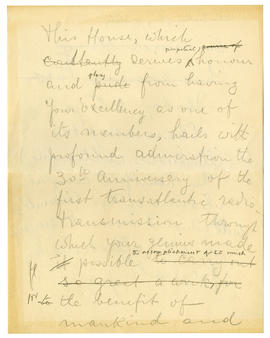 This House, which
perpetual, source of
constantly derives honour
glory
and pride from having
Your Excellency as one of
its members, hails with
profound admiration the
30th Anniversary of the
first transatlantic radio
transmission through
which your genius made
to accomplishment of so much
it possible
so great a work for
to the benefit of
mankind and